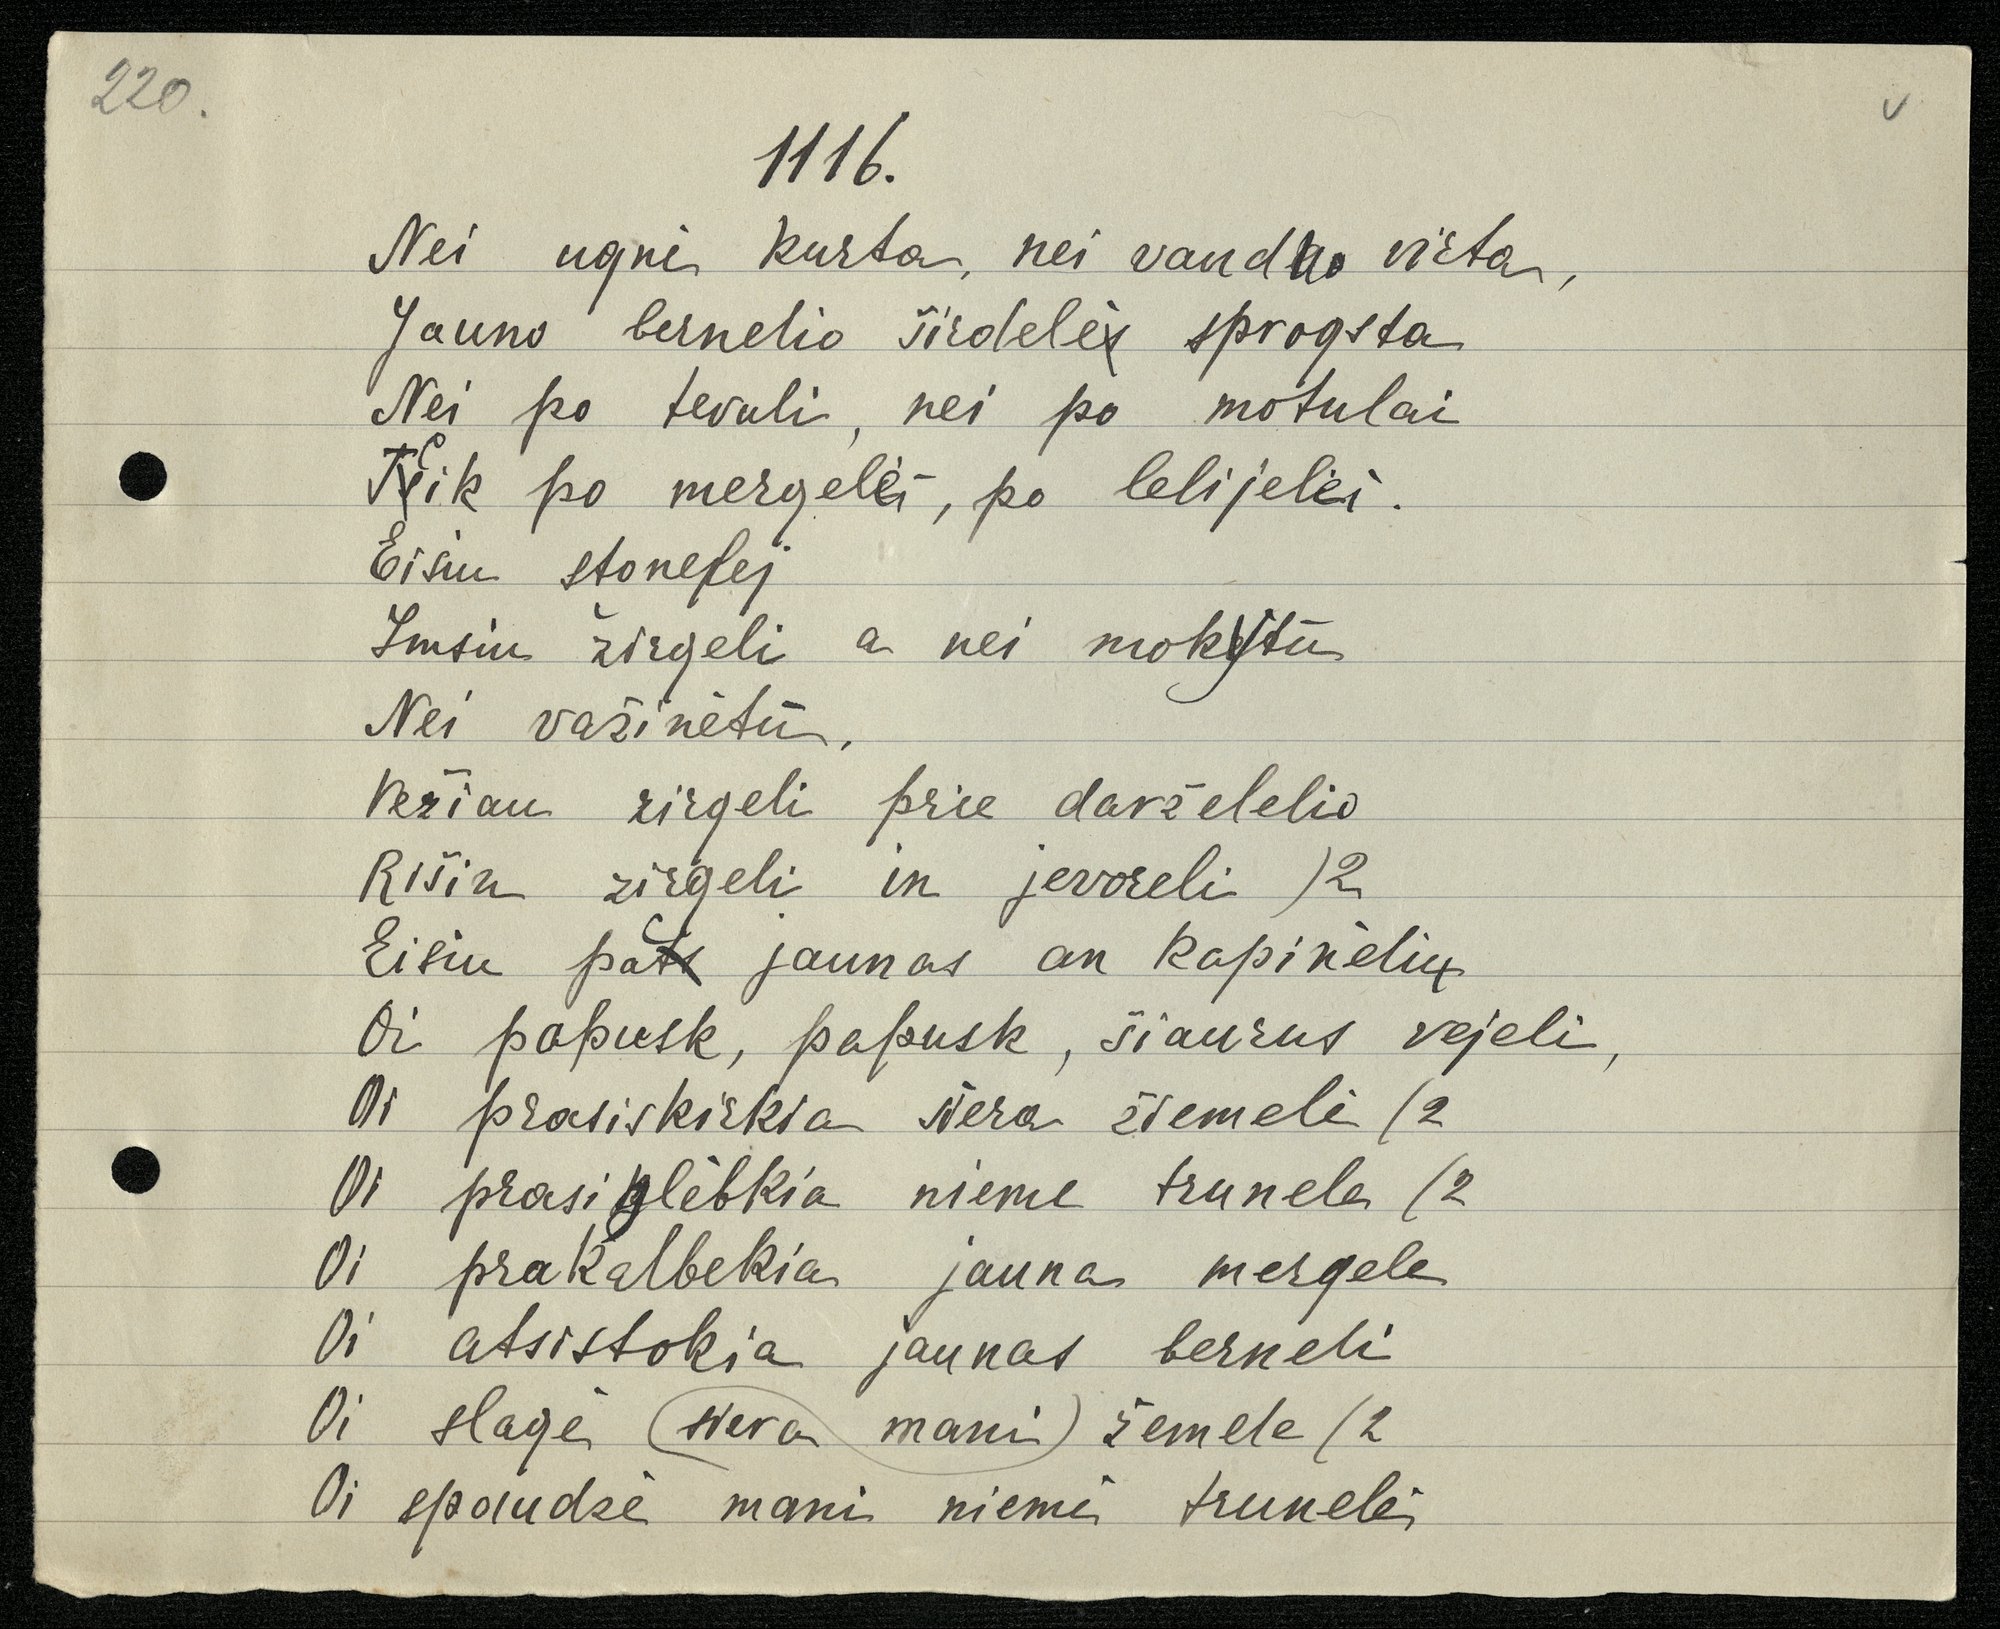 220.
v
1116.
Nei ugnė kurta, nei vanduo virta,
Jauno bernelio širdelės sprogsta
Nei po tevuli, nei po motulai
Teik po mergelei, po lelijelei.
Eisiu stonelej
Imsiu žirgeli a nei mokytū
Nei važinėtū.
Vežiau zirgeli prie darželelio
Rišiu zirgeli in jevoreli )2
Eisiu pats jaunas an kapinėliu
Oi papusk, papusk, šiaurus vejeli,
Oi prasiskirkia siera žiemelė (2
Oi prasiglėbkia nieme trunela (2
Oi prakalbekia jauna mergela
Oi atsistokia jaunas berneli
Oi slagė (siera mani) žemela (2
Oi spaudzė mani niemė trunelė